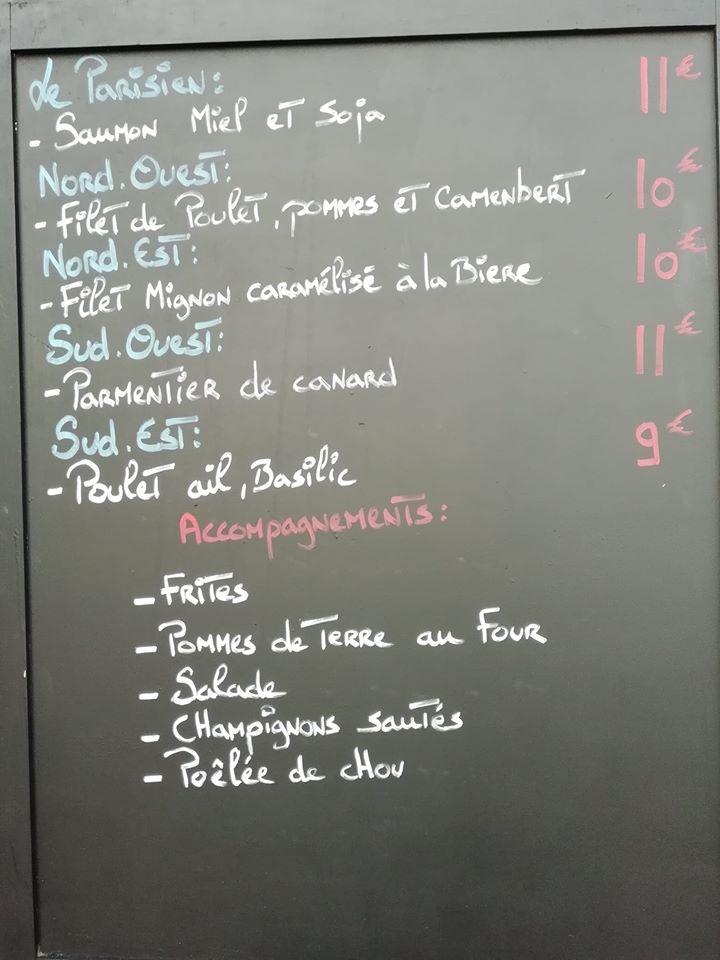 Le Parisien: 11€
- Saumon Miel et Soja
Nord.Ouest: 10€
- Filet de Poulet, pommes et Camenbert
Nord.Est: 10€
- Filet Mignon caramélisé à la Biere
Sud.Ouest: 11€
- Parmentier de canard
Sud.Est: 9€
- Poulet ail, Basilic
Accompagnements:
- Frites
- Pommes de Terre au Four
- Salade
- Champignons sautés
- Poêlée de chou